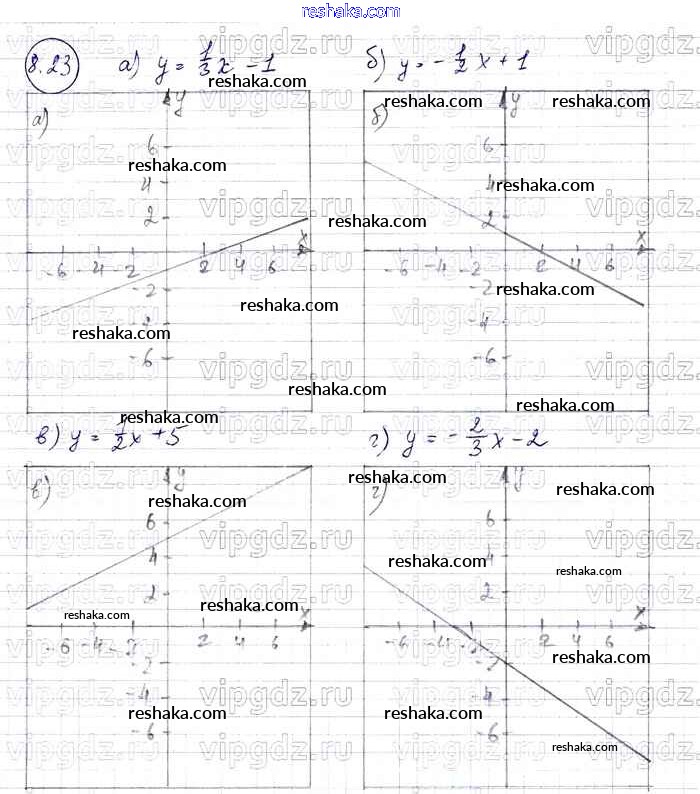 reshaka.com
8.23 а) y = 1/3 x - 1 б) y = - 1/2 x + 1
reshaka.com reshaka.com reshaka.com
а) y б) y
vipgdz.ru vipgdz.ru
reshaka.com reshaka.com
6 6
4 4
reshaka.com
2 2
reshaka.com
x x
-6 -4 -2 2 4 6 -6 -4 -2 2 4 6
vipgdz.ru vipgdz.ru
-2 -2
reshaka.com reshaka.com
-4
reshaka.com
-6 -6
reshaka.com
reshaka.com
в) y = 1/2 x + 5 г) y = - 2/3 x - 2
в) y г) y
vipgdz.ru vipgdz.ru
reshaka.com reshaka.com
6 6
4 4
reshaka.com
reshaka.com
2 2
reshaka.com reshaka.com
x x
-6 -4 -2 2 4 6 -6 -4 -2 2 4 6
reshaka.com
-2 -2
-4 -4
vipgdz.ru vipgdz.ru
reshaka.com reshaka.com
-6 -6
reshaka.com